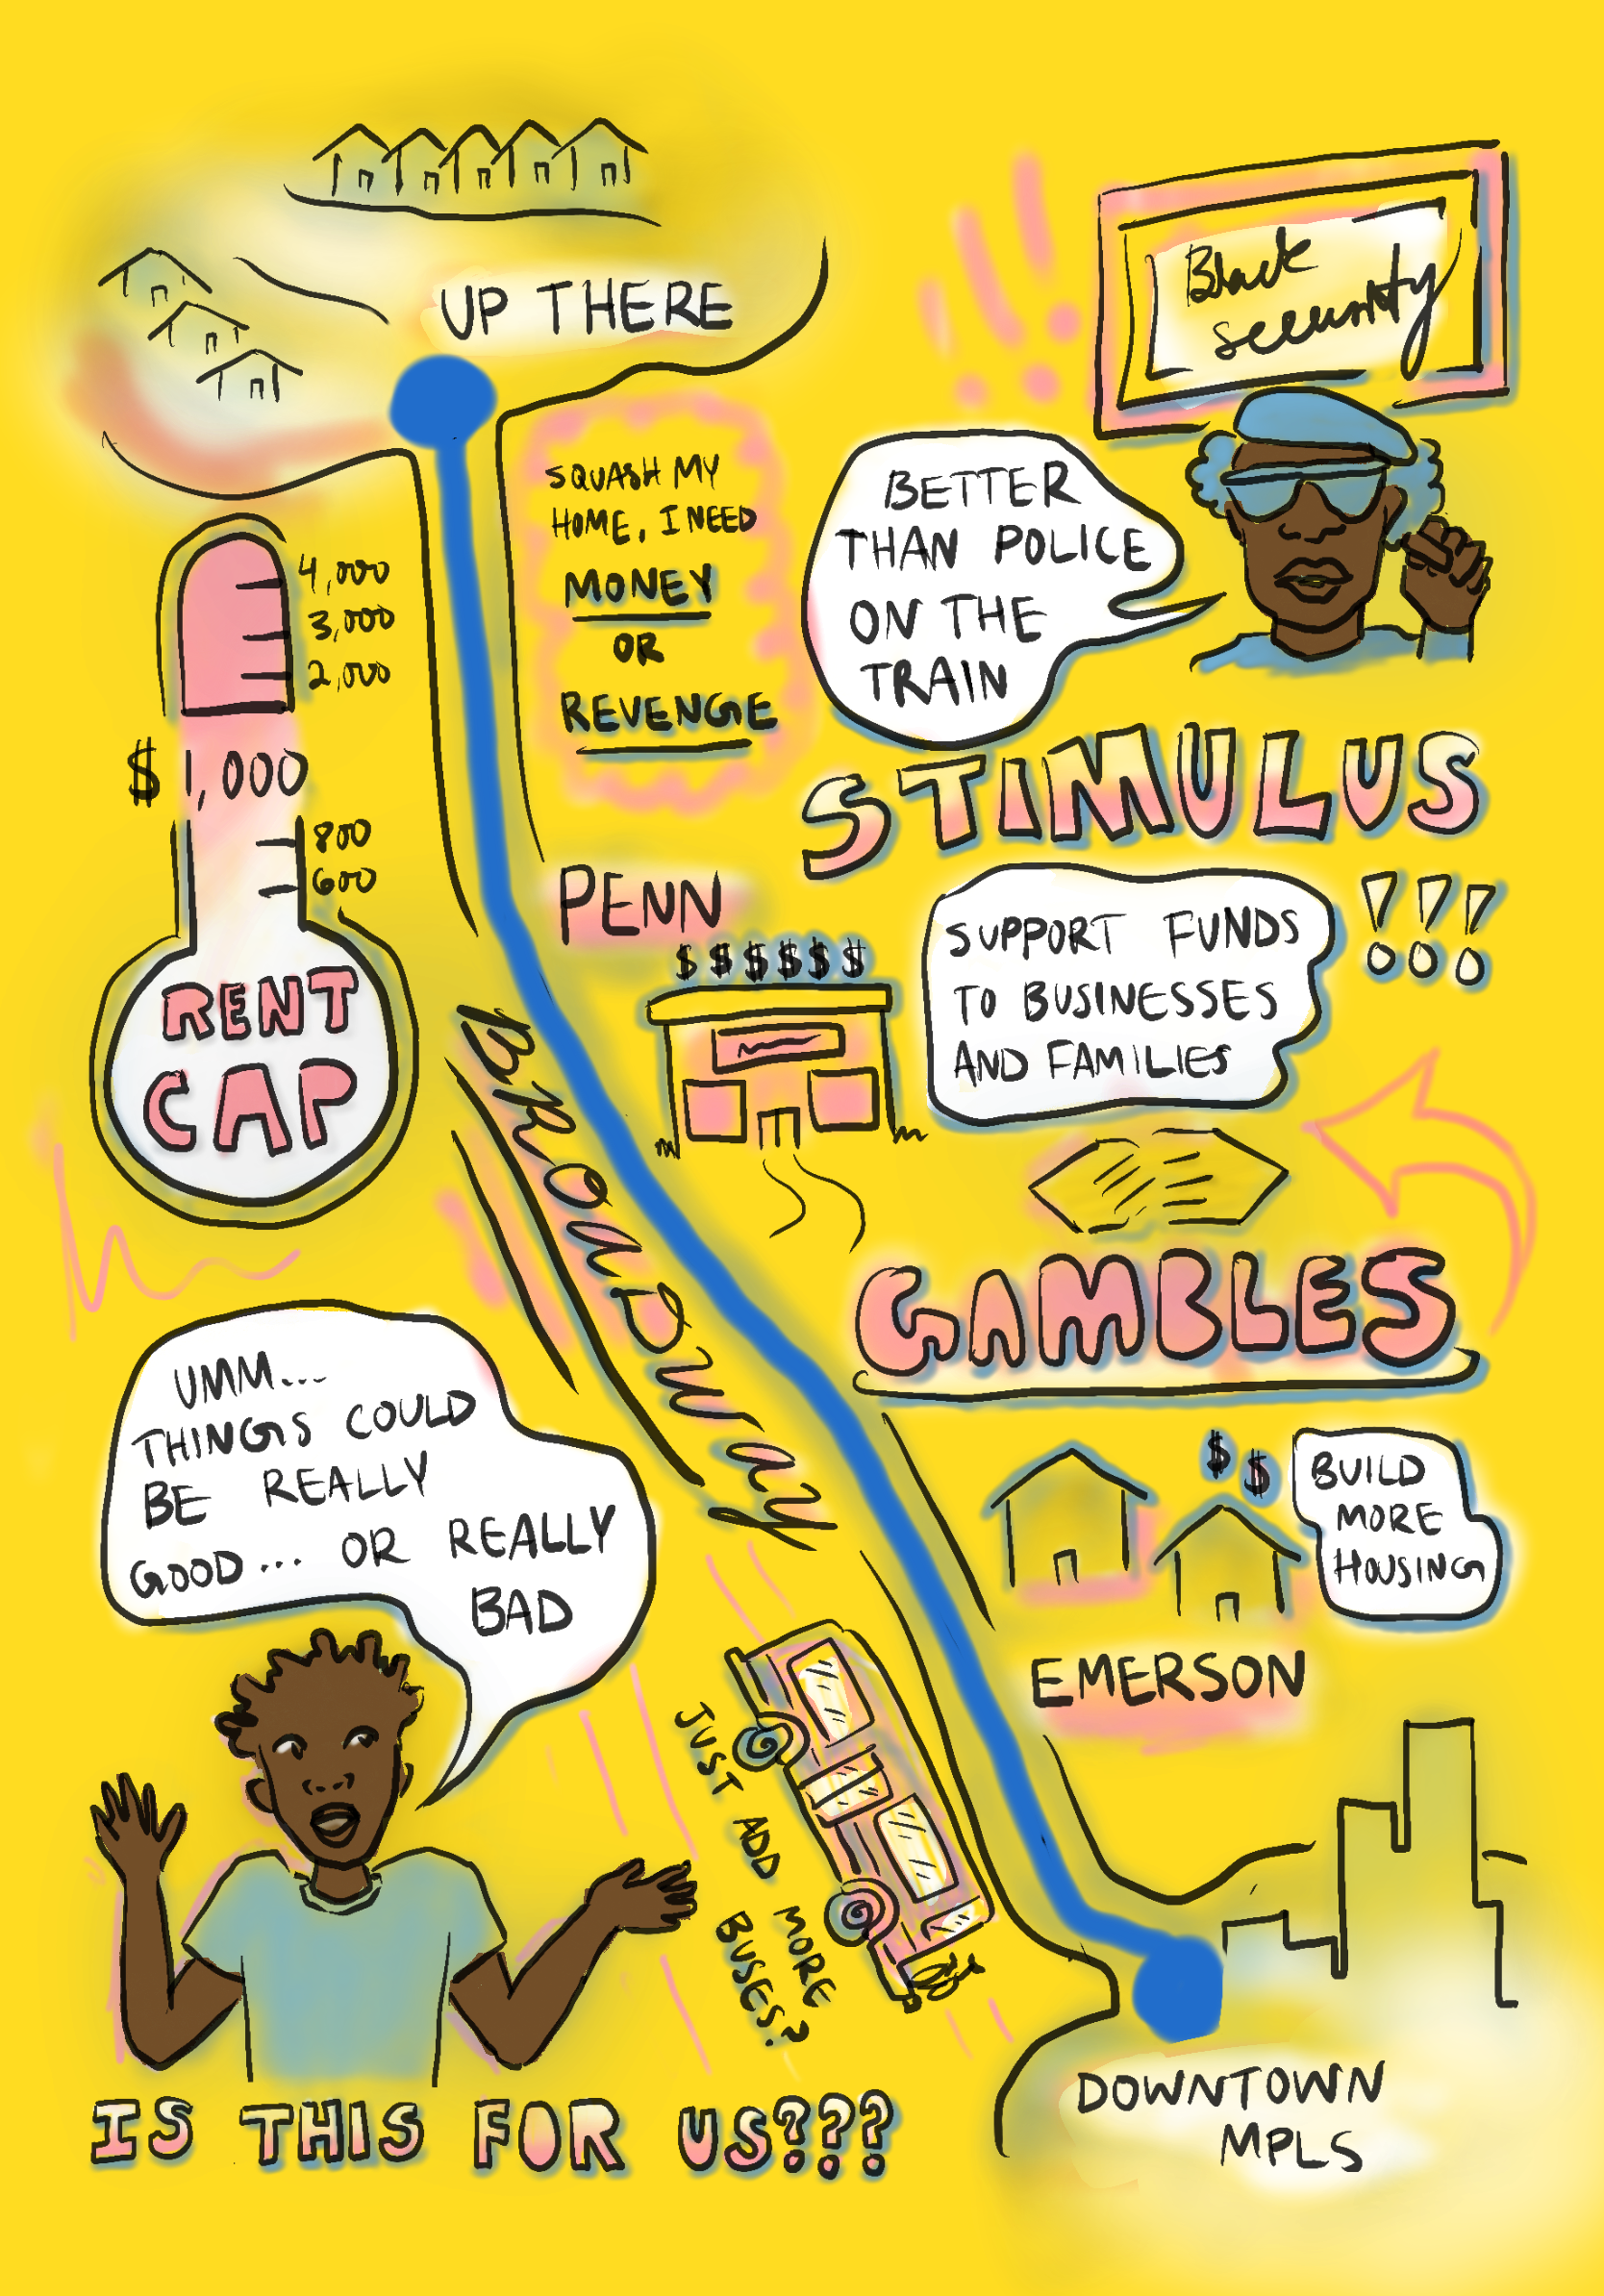 UP THERE
Black
security
BETTER
THAN POLICE
ON THE
TRAIN
SQUASH MY
HOME, I NEED
MONEY
OR
REVENGE
4,000
3,000
2,000
$1,000
800
600
RENT
CAP
STIMULUS
!!!
PENN
$$$$$$
SUPPORT FUNDS
TO BUSINESSES
AND FAMILIES
BROADWAY
GAMBLES
UMM...
THINGS COULD
BE REALLY
GOOD... OR REALLY
BAD
$$
BUILD
MORE
HOUSING
EMERSON
JUST ADD MORE
BUSES?
IS THIS FOR US???
DOWNTOWN
MPLS